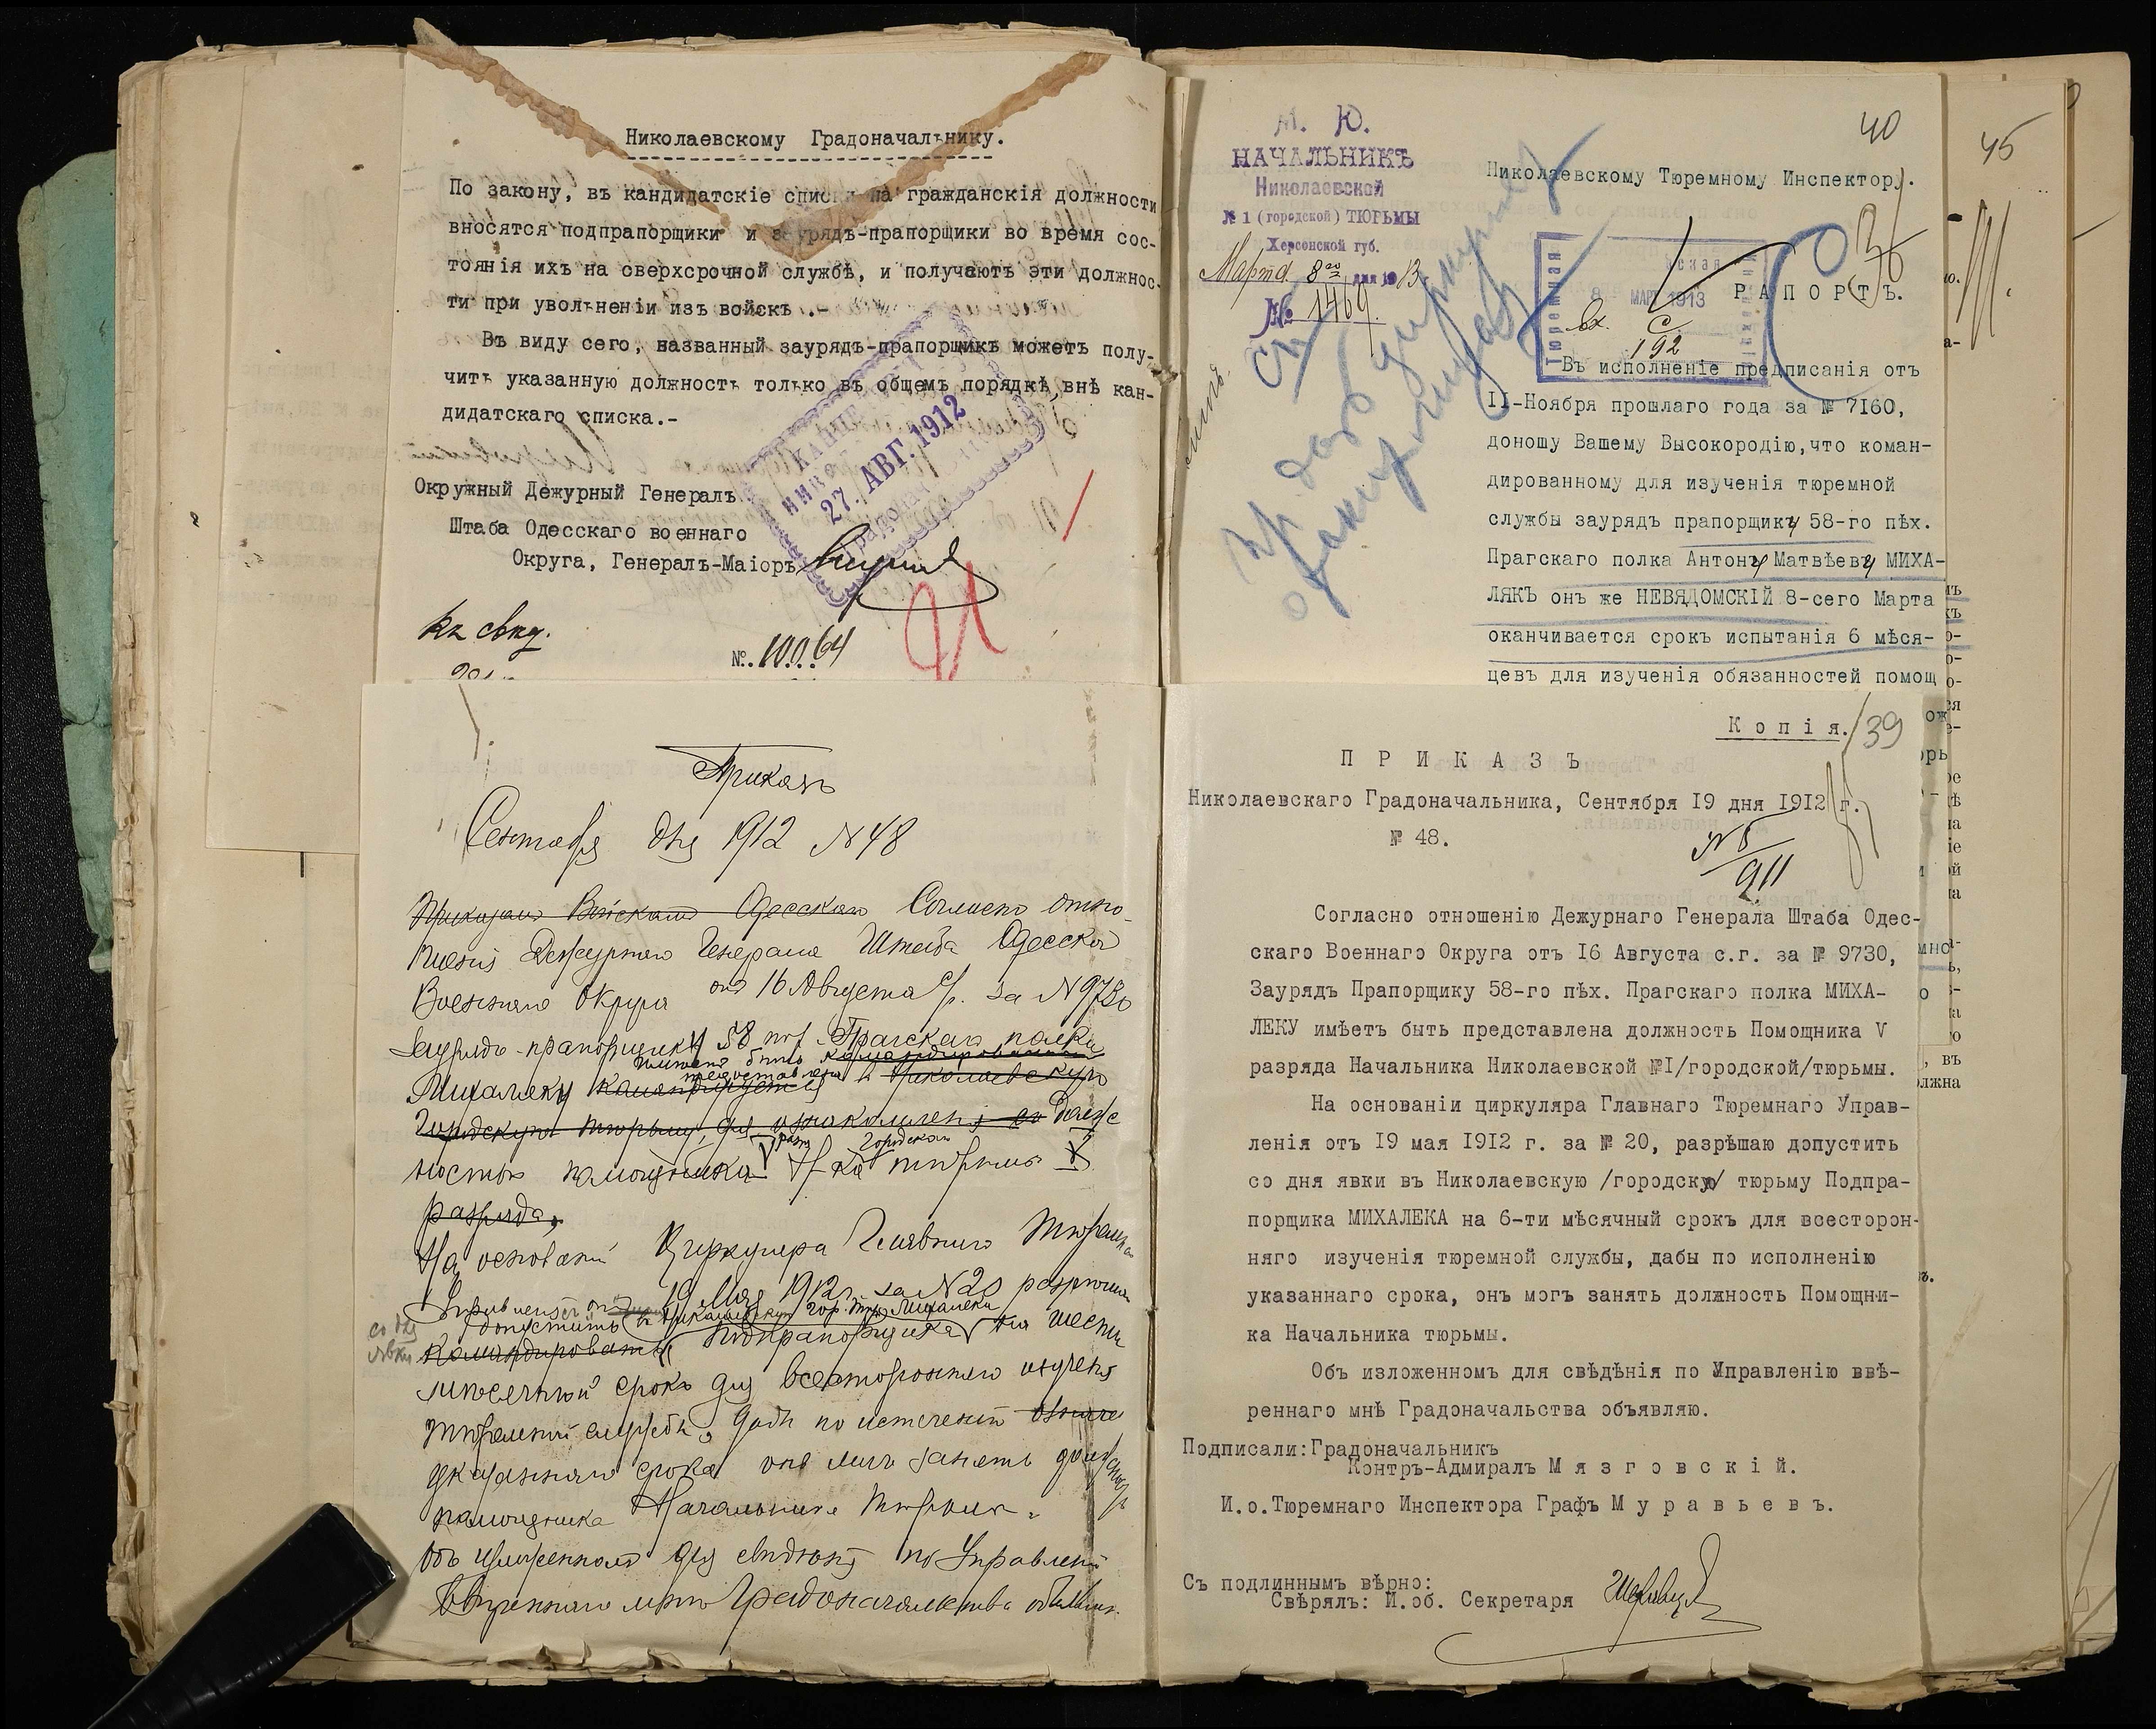 Николаевскому Градоначальнику.
По закону, въ кандидатскіе списки на гражданскія должности
вносятся подпрапорщики и заурядъ-прапорщики во время сос-
тоянія ихъ на сверхсрочной службѣ, и получаютъ эти должнос-
ти при увольненіи изъ войскъ.-
Въ виду сего, названный заурядъ-прапорщикъ можетъ полу-
чить указанную должность только въ общемъ порядкѣ, внѣ кан-
дидатскаго списка.-
27. АВГ. 1912
Окружный Дежурный Генералъ
Штаба Одесскаго военнаго
Округа, Генералъ-Маіоръ
Къ свѣд.
№. 10.064
Приказъ
Сентября дня 1912 N 48
Приказомъ Войскамъ Одесскаго Согласно отно-
шенія Дежурнаго Генерала Штаба Одесскаго
Военнаго Округа отъ 16 Августа с/г. за N 9730
Заурядъ-прапорщику 58 пѣх. Прагскаго полка
имѣетъ быть командированный
предоставлена
Михалеку командируется въ Николаевскую
Городскую тюрьму, для ознакомленія съ долж
городской
ностью помощника Н-ка тюрьмы V
разряда,
На основаніи Циркуляра Главнаго Тюремна
Управленія отъ 19 Мая 1912 г. за N 20 разрѣшаю
допустить въ Николаевскую гор. тюр. Михалека
со дня
явки
Командировать Подпрапорщика на шести
мѣсячный срокъ для всесторонняго изученія
тюремной службы, дабы по истеченіи
указаннаго срока онъ могъ занять должность
помощника Начальника тюрьмы.
Объ изложенномъ для свѣдѣнія по Управленію
Ввѣреннаго мнѣ Градоначальства объявляю.
40
45
М. Ю.
НАЧАЛЬНИКЪ
Николаевской
№ 1 (городской) ТЮРЬМЫ
Херсонской губ.
Марта 8го дня 1913
№ 1469.
Николаевскому Тюремному Инспектору.
8 МАР 1913
Вх. С
192
РАПОРТЪ.
Въ исполненіе предписанія отъ
II-Ноября прошлаго года за № 7I60,
доношу Вашему Высокородію, что коман-
дированному для изученія тюремной
службы заурядъ прапорщику 58-го пѣх.
Прагскаго полка Антону Матвѣеву МИХА-
ЛЯКЪ онъ же НЕВЯДОМСКІЙ 8-сего Марта
оканчивается срокъ испытанія 6 мѣся-
цевъ для изученія обязанностей помощ
Копія.
39
ПРИКАЗЪ
Николаевскаго Градоначальника, Сентября I9 дня I9I2 г.
№ 48.
N 5
911
Согласно отношенію Дежурнаго Генерала Штаба Одес-
скаго Военнаго Округа отъ I6 Августа с.г. за № 9730,
Заурядъ Прапорщику 58-го пѣх. Прагскаго полка МИХА-
ЛЕКУ имѣетъ быть представлена должность Помощника V
разряда Начальника Николаевской №I/городской/тюрьмы.
На основаніи циркуляра Главнаго Тюремнаго Управ-
ленія отъ I9 мая I9I2 г. за № 20, разрѣшаю допустить
со дня явки въ Николаевскую /городскую/ тюрьму Подпра-
порщика МИХАЛЕКА на 6-ти мѣсячный срокъ для всесторон-
няго изученія тюремной службы, дабы по исполненію
указаннаго срока, онъ могъ занять должность Помощни-
ка Начальника тюрьмы.
Объ изложенномъ для свѣдѣнія по Управленію ввѣ-
реннаго мнѣ Градоначальства объявляю.
Подписали: Градоначальникъ
Контръ-Адмиралъ Мязговскій.
И.о. Тюремнаго Инспектора Графъ Муравьевъ.
Съ подлиннымъ вѣрно:
Свѣрялъ: И.об. Секретаря